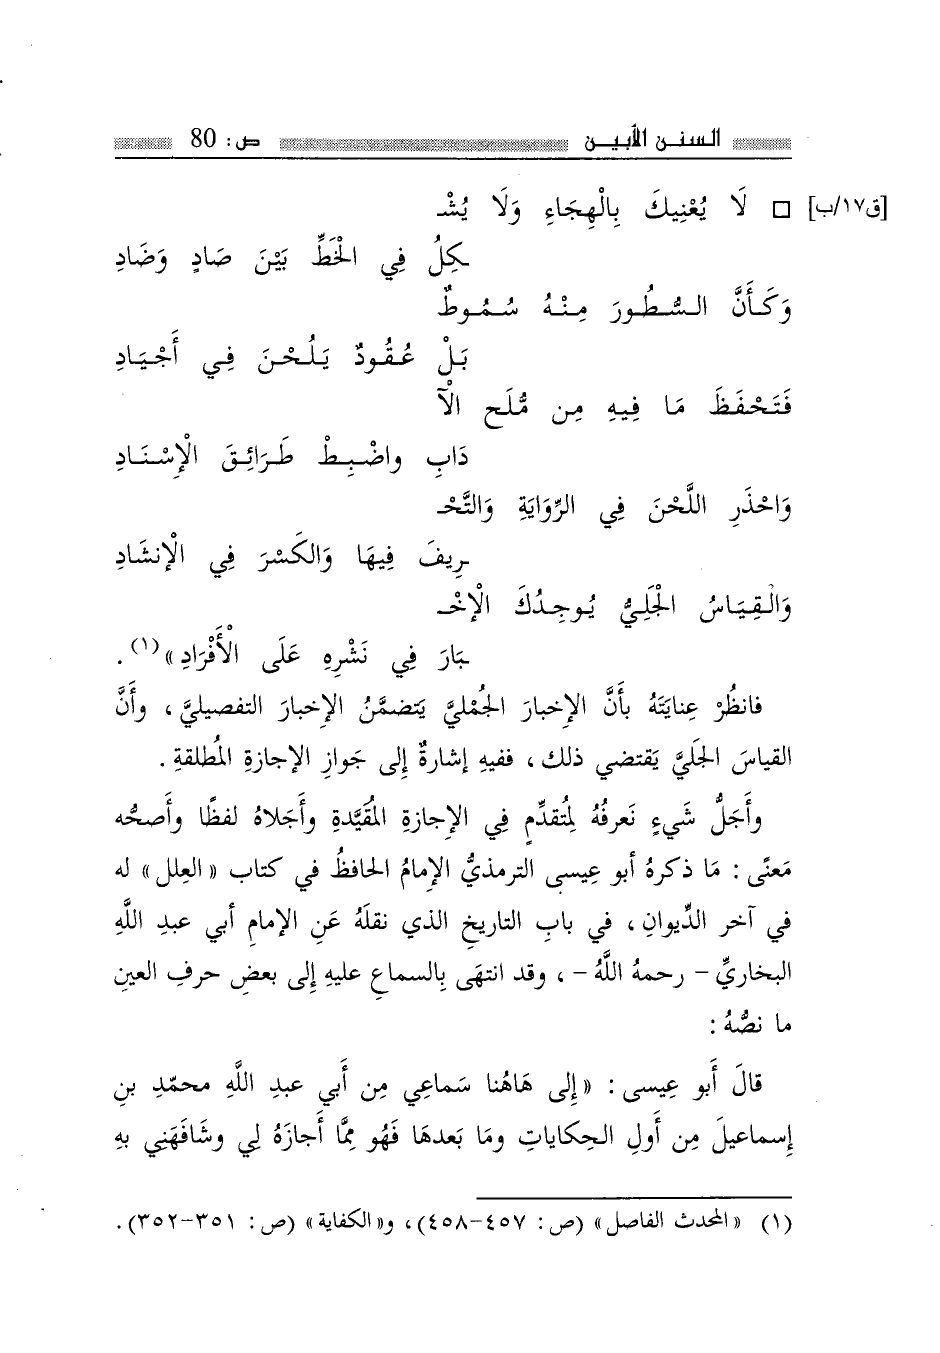 السنن الأبين ص: 80
[ق١٧/ب] □ لَا يُعْنِيكَ بِالْهِجَاءِ وَلَا يُشْـ
ـكِلُ فِي الْخَطِّ بَيْنَ صَادٍ وَضَادِ
وَكَأَنَّ السُّطُورَ مِنْهُ سُمُوطٌ
بَلْ عُقُودٌ يَلُحْنَ فِي أَجْيَادِ
فَتَحْفَظَ مَا فِيهِ مِن مُّلَحِ الْآ
دَابِ واضْبِطْ طَرَائِقَ الْإِسْنَادِ
وَاحْذَرِ اللَّحْنَ فِي الرِّوَايَةِ وَالتَّحْـ
ـرِيفَ فِيهَا وَالكَسْرَ فِي الْإنشَادِ
وَالْقِيَاسُ الْجَلِيُّ يُوجِدُكَ الْإخْـ
ـبَارَ فِي نَشْرِهِ عَلَى الْأَفْرَادِ»(١).
فانظُرْ عِنايَتَهُ بأَنَّ الإخبارَ الجُمْليَّ يَتضمَّنُ الإخبارَ التفصيليَّ، وأنَّ
القياسَ الجَليَّ يَقتضي ذلك، ففيهِ إشارةٌ إلى جَوازِ الإجازةِ المُطلقةِ.
وأَجَلُّ شَيءٍ نَعرفُهُ لمُتقدِّمٍ في الإجازةِ المُقَيَّدةِ وأَجَلاهُ لفظًا وأَصحُّه
مَعنًى: مَا ذكرهُ أبو عِيسى الترمذيُّ الإمامُ الحافظُ في كتاب «العِلل» له
في آخر الدِّيوانِ، في بابِ التاريخِ الذي نقلَهُ عَنِ الإمامِ أبي عبدِ اللَّهِ
البخاريِّ - رحمهُ اللَّهُ -، وقد انتهَى بِالسماعِ عليهِ إلى بعضِ حرفِ العينِ
ما نصُّهُ:
قالَ أَبو عِيسى: «إلى هَاهُنا سَماعِي مِن أَبي عبدِ اللَّهِ محمّدِ بنِ
إسماعيلَ مِن أَولِ الحِكاياتِ ومَا بَعدهَا فَهُو مِمَّا أَجازَهُ لِي وشَافَهَنِي بهِ
(١) «المحدث الفاصل» (ص: ٤٥٧-٤٥٨)، و«الكفاية» (ص: ٣٥١-٣٥٢).